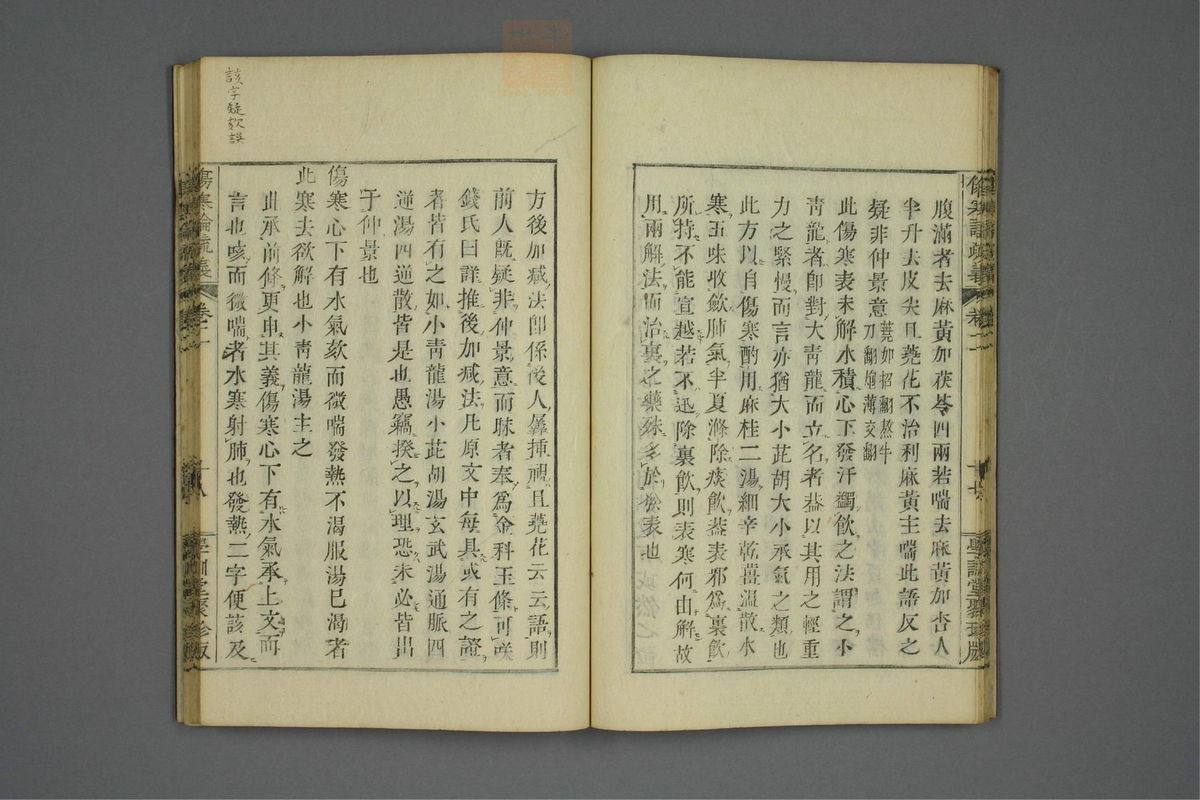 腹滿者去麻黃加茯苓四兩若喘去麻黃加杏人
半升去皮尖且蕘花不治利麻黃主喘此語反之
疑非仲景意蕘如招翻熬牛
刀翻炮薄交翻
此傷寒表未解水積心下發汗蠲飲之法謂之小
靑龍者卽對大靑龍而立名者葢以其用之輕重
力之緊慢而言亦猶大小茈胡大小承氣之類也
此方以自傷寒酌用麻桂二湯細辛乾薑溫散水
寒五味收斂肺氣半夏滌除痰飮葢表邪爲裏飮
所持不能宣越若不迅除裏飮則表寒何由解故
用兩解法而治裏之藥殊多於松表也
方後加減法卽係後人羼挿視且蕘花云云語則
前人旣疑非仲景意而眛者奉爲金科玉條可咲
錢氏曰詳推後加減法凡原文中每具或有之證
者皆有之如小靑龍湯小茈胡湯玄武湯通脈四
逆湯四逆散皆是也愚竊揆之以理恐未必皆出
于仲景也
傷寒心下有水氣欬而微喘發熱不渴服湯已渴者
此寒去欲解也小靑龍湯主之
此承前條更申其義傷寒心下有水氣承上文而
言也咳而微喘者水寒射肺也發熱二字便該及
該字疑欬誤
傷寒論疏義 卷二 十八 學訓堂聚珍版